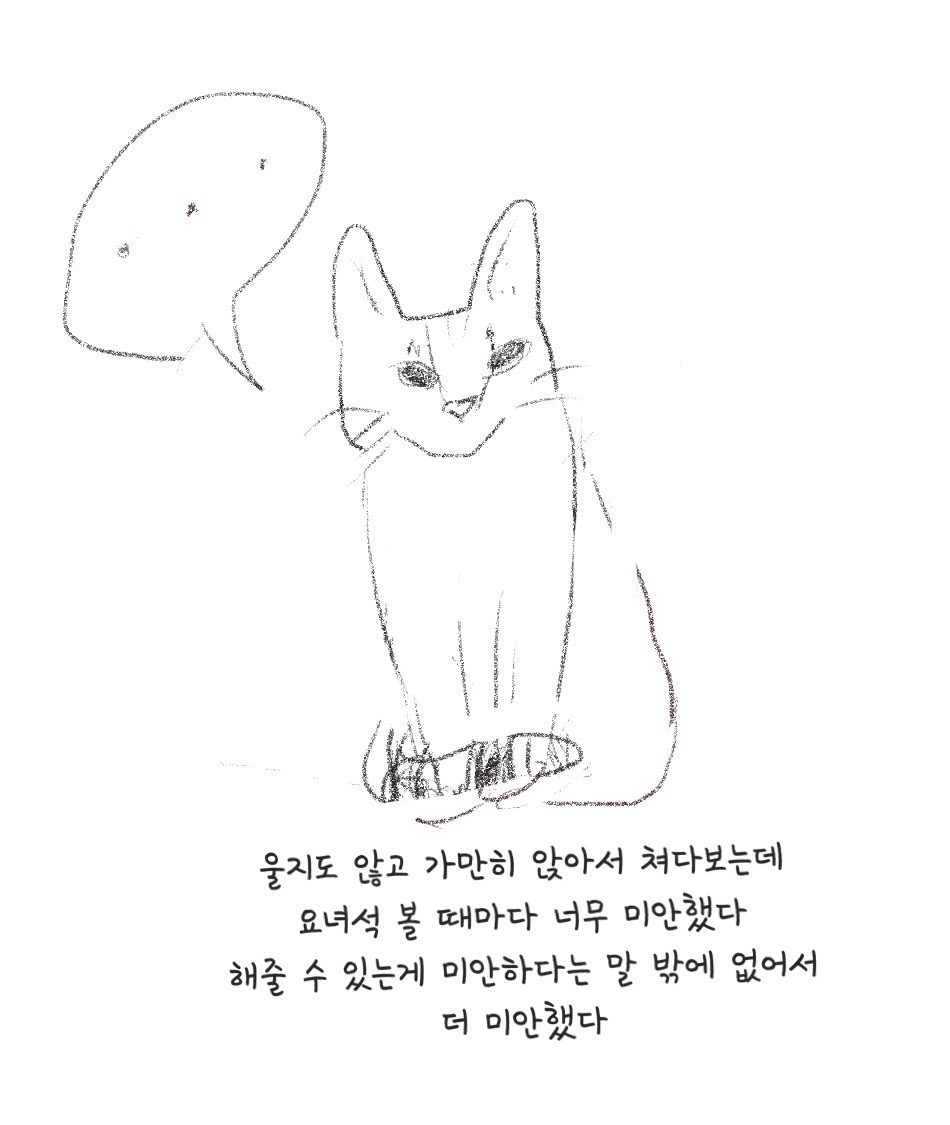 ...
울지도 않고 가만히 앉아서 쳐다보는데
요녀석 볼 때마다 너무 미안했다
해줄 수 있는게 미안하다는 말 밖에 없어서
더 미안했다